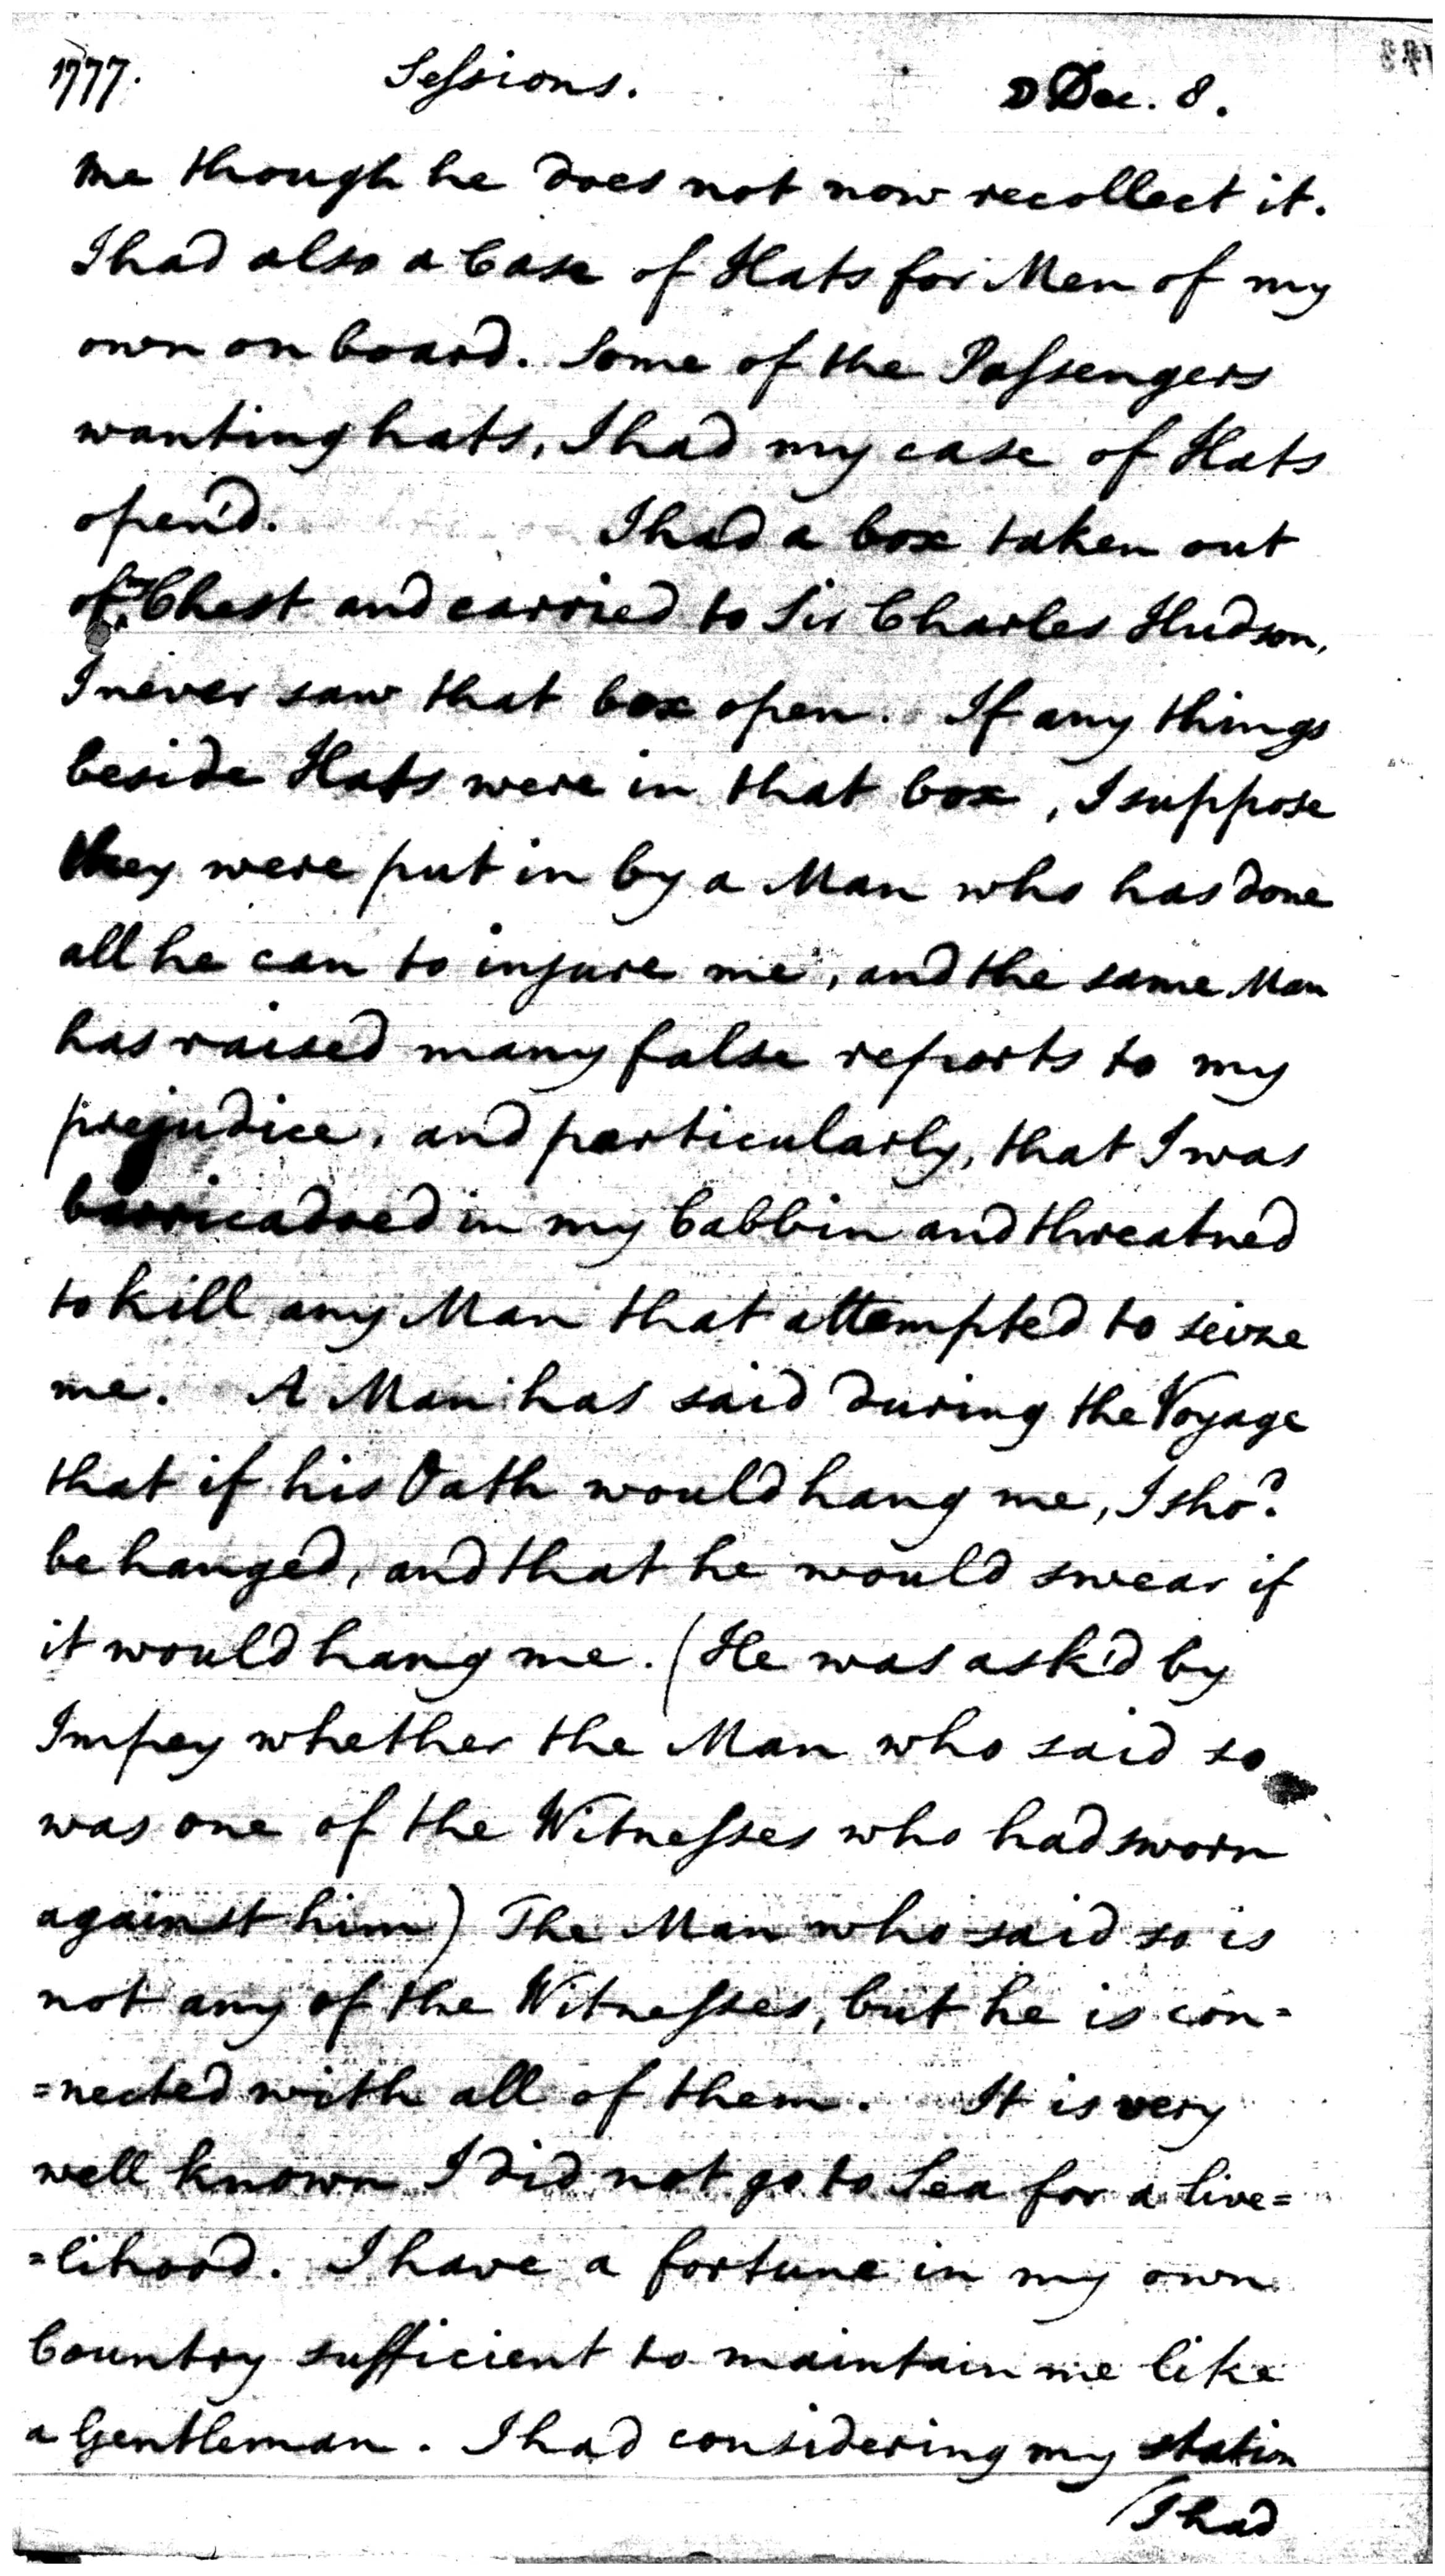 1777. Sessions. D Dec. 8.
me though he does not now recollect it.
I had also a Case of Hats for Men of my
own on board. Some of the Passengers
wanting hats, I had my case of Hats
open'd. I had a box taken out
of my Chest and carried to Sir Charles Hudson,
I never saw that box open. If any things
beside Hats were in that box, I suppose
they were put in by a Man who has done
all he can to injure me, and the same Man
has raised many false reports to my
prejudice, and particularly, that I was
barricadoed in my Cabbin and threatned
to kill any Man that attempted to seize
me. A Man has said during the Voyage
that if his Oath would hang me, I sho.d
be hanged, and that he would swear if
it would hang me. (He was ask'd by
Impey whether the Man who said so
was one of the Witnesses who had sworn
against him) The Man who said so is
not any of the Witnesses, but he is con=
=nected with all of them. It is very
well known I did not go to Sea for a live=
=lihood. I have a fortune in my own
Country sufficient to maintain me like
a Gentleman. I had considering my station
/I had